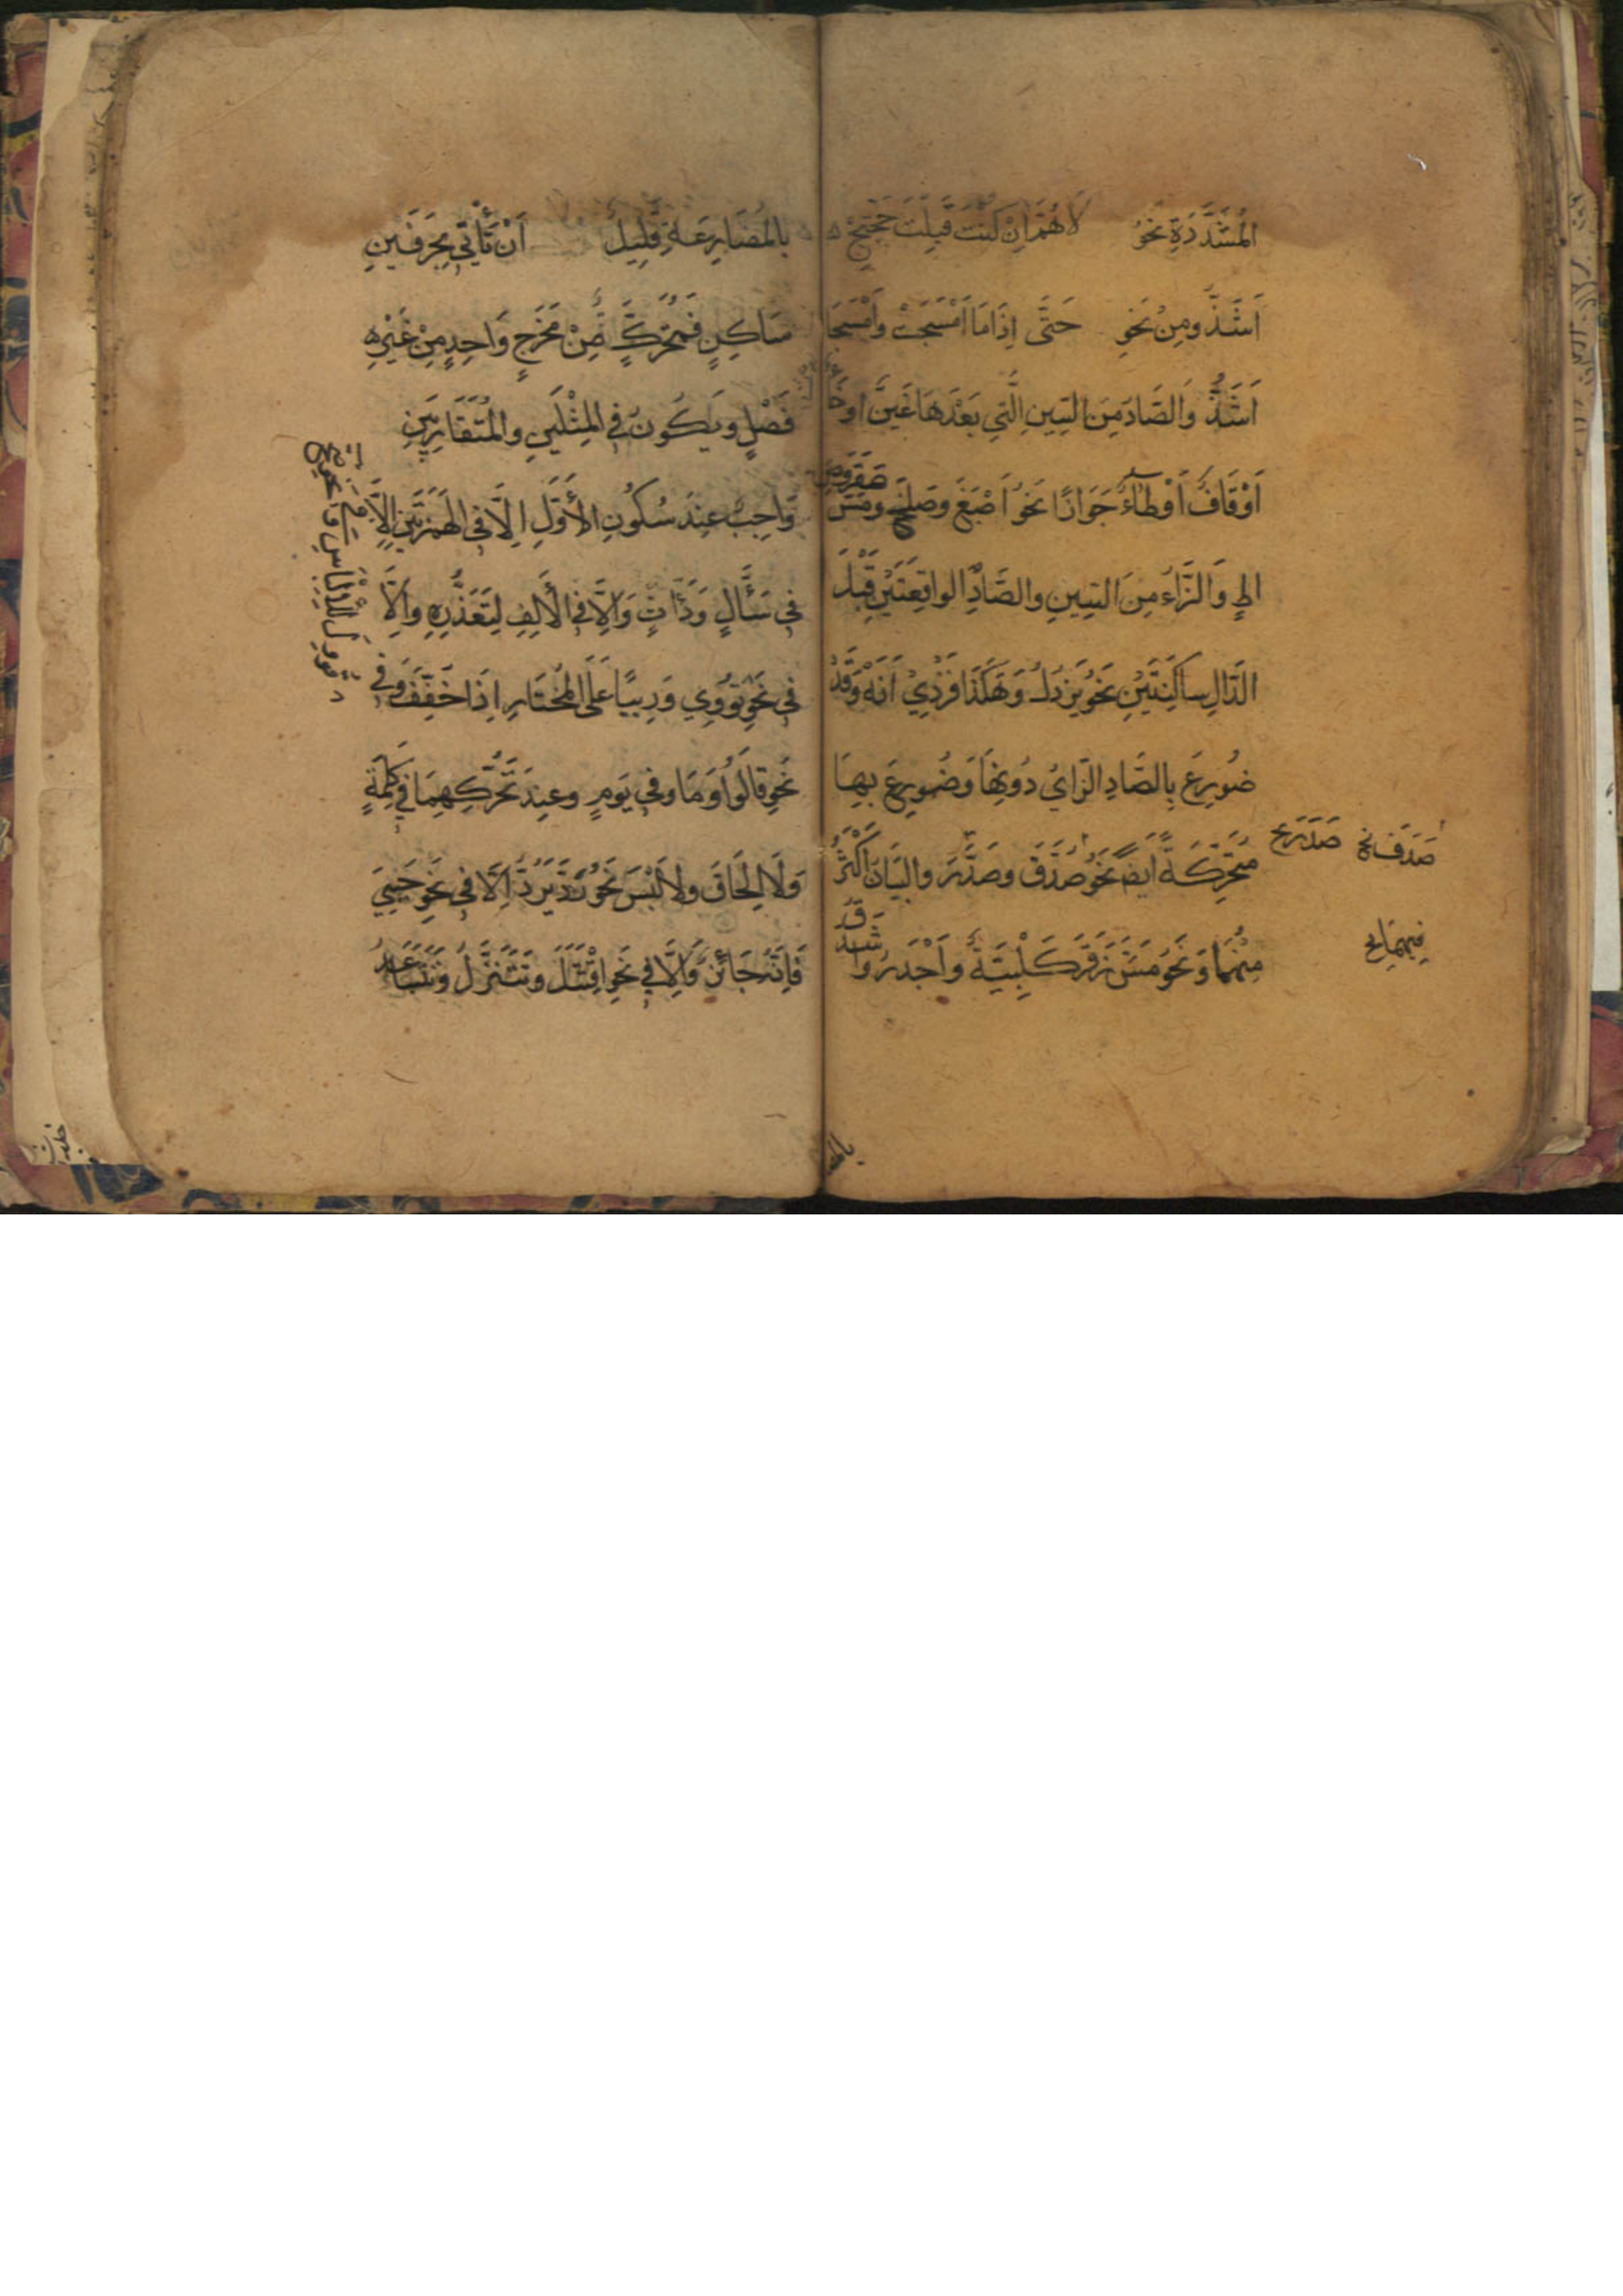 المُشَدَّدَةِ نَحْوُ لَاهُمَّ اِنْ كُنْتَ قَبِلْتَ حَجَّتِجْ
اَشَذُّ ومِنْ نَحْوِ حَتَّى اِذَامَا اَمْسَجَتْ وَاَمْسَجَا
اَشَذُّ وَالصَّادَ مِنَ السِّينِ الَّتِي بَعْدَهَا غَيْنٌ اَوْ خَاءٌ
اَوْ قَافٌ اَوْ طَاءٌ جَوَازًا نَحْوُ اَصْبَغَ وَصَلَخَ ومَسَّ صَقَرَ وصِ
اطٍ وَالزَّاءُ مِنَ السِّينِ والصَّادِ الواقِعَتَيْنِ قَبْلَ
الدَّالِ ساكِنَتَيْنِ نَحْوُ يَزْدُلُ وَهَكَذَا فَزْدِيْ اَنَهْ وَقَدْ
ضُورِعَ بِالصَّادِ الزَّايُ دُونَهَا وَضُورِعَ بِهَا
مُتَحَرِّكَةً اَيْضًا نَحْوُ صَدَقَ وصَدَرَ والبَيَانُ اَكْثَرُ
مِنْهُمَا وَنَحْوُ مَسَّ زَقَرَ كَلْبِيَّةٌ وَاَجْدَرُ وَاشْدَقُ
صَدَرَ خ
صَدَقَ خ
فِيهِمَا خ
بالمضا
بالمُضَارِعَةِ قَلِيلٌ اَنْ تَأْتِيَ بِحَرْفَيْنِ
سَاكِنٍ فَمُتَحَرِّكٍ مِّنْ مَخْرَجٍ وَاحِدٍ مِنْ غَيْرِ
فَصْلٍ وَيَكُونُ فِي المِثْلَيْنِ والمُتَقَارِبَيْنِ
وَاجِبٌ عِنْدَ سُكُونِ الأَوَّلِ اِلَّا فِي الهَمْزَتَيْنِ اِلَّا
فِي سَئَّالٍ وَدَّاثٍ وَاِلَّا فِي الأَلِفِ لِتَعَذُّرِهِ واِلَّا
فِي نَحْوِ تُوْوِي وَرِيْيًا عَلَى المُخْتَارِ اِذَا خَفَّفْتَ وَفِي
نَحْوِ قَالُوا وَمَا وفِي يَوْمٍ وعِنْدَ تَحَرُّكِهِمَا فِي كَلِمَةٍ
وَلَا اِلْحَاقَ ولَا لَبْسَ نَحْوُ رَدَّ يَرُدُّ اِلَّا فِي نَحْوِ حَيِيَ
فَاِنَّهُ جَائِزٌ وَاِلَّا فِي نَحْوِ اقْتَتَلَ وَتَتَنَزَّلُ وَتَتَبَاعَدُ